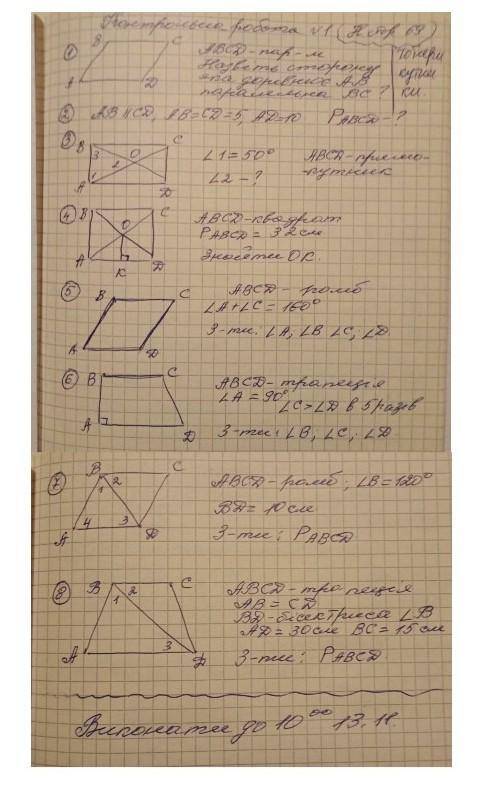 Контрольна робота №1 (II стр 69)
① B C A D
ABCD-пар-м
Назвіть сторону
яка дорівнює AB
паралельна BC?
Товари
кутни
ки.
② AB∥CD, AB=CD=5, AD=10 PABCD-?
③ B C 3 2 O 1 A D
∠1=50° ABCD-прямо-
∠2-? кутник
④ B C O A K D
ABCD-квадрат
PABCD = 32см
Знайти OK.
⑤ B C A D
ABCD- ромб
∠A+∠C=160°
З-ти: ∠A; ∠B ∠C; ∠D.
⑥ B C A D
ABCD-трапеція
∠A=90°
∠C>∠D в 5разів
З-ти: ∠B; ∠C; ∠D.
⑦ B 2 C 1 A 4 3 D
ABCD-ромб; ∠B=120°
BD=10см
З-ти: PABCD
⑧ B 2 C 1 A 3 D
ABCD-трапеція
AB=CD
BD-бісектриса ∠B
AD=30см BC=15см
З-ти: PABCD
Виконати до 10⁰⁰ 13.11.